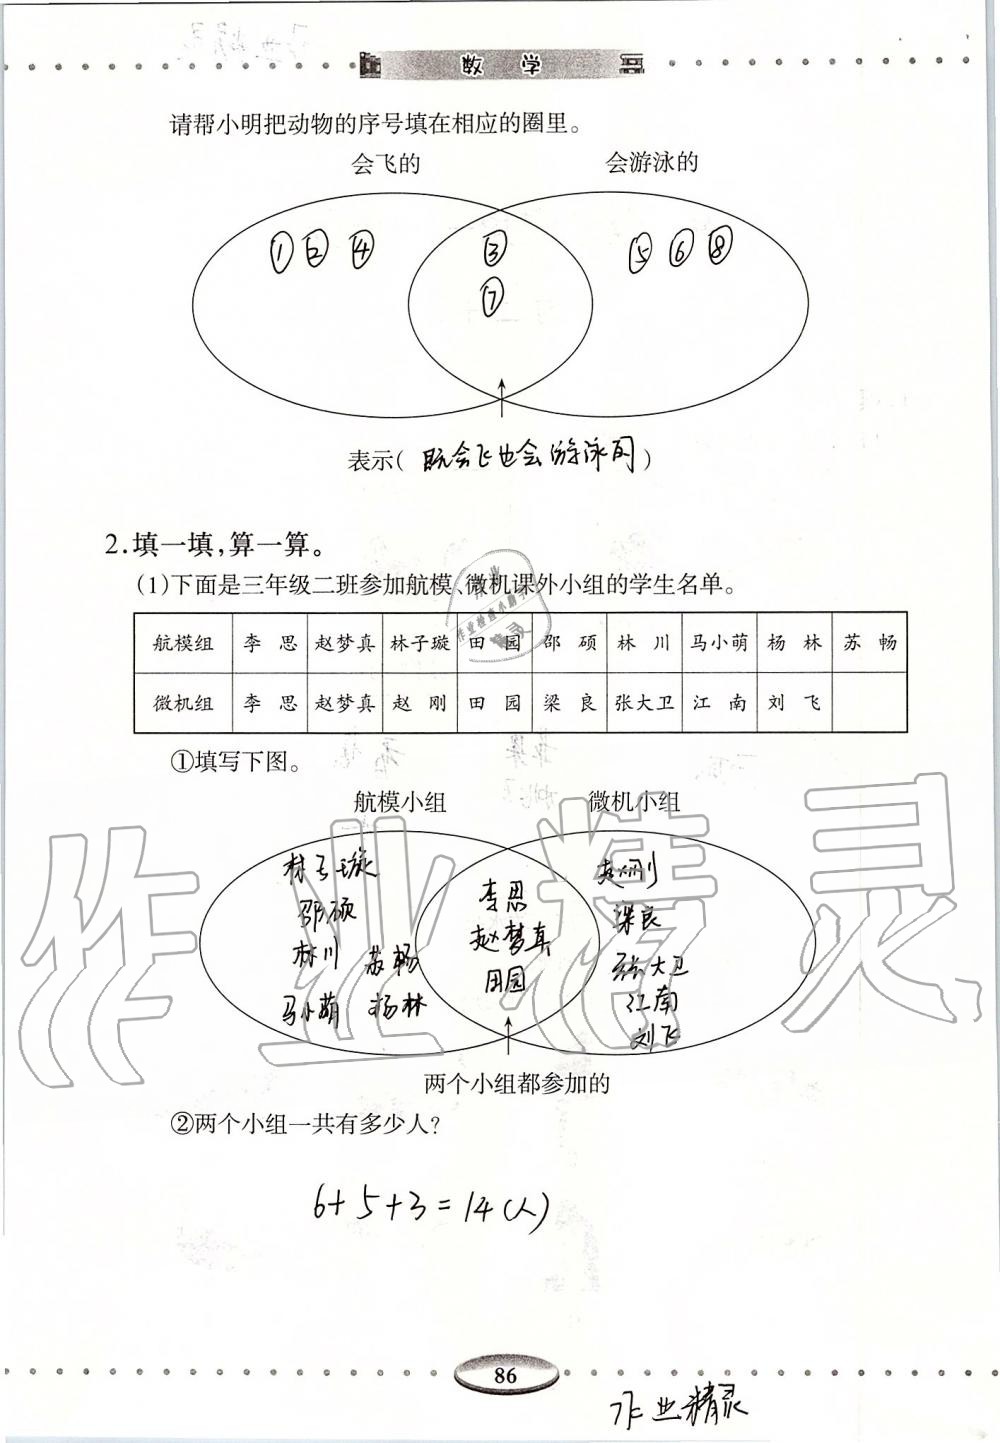 作业精灵
数 学
请帮小明把动物的序号填在相应的圈里。
会飞的 会游泳的
① ② ④ ③ ⑤ ⑥ ⑧
⑦
表示( 既会飞也会游泳的 )
2.填一填,算一算。
(1)下面是三年级二班参加航模、微机课外小组的学生名单。
航模组 李 思 赵梦真 林子璇 田 园 邵 硕 林 川 马小萌 杨 林 苏 畅
微机组 李 思 赵梦真 赵 刚 田 园 梁 良 张大卫 江 南 刘 飞
①填写下图。
航模小组 微机小组
林子璇 李思 赵刚
邵硕 赵梦真 梁良
林川 苏畅 田园 张大卫
马小萌 杨林 江南
刘飞
两个小组都参加的
②两个小组一共有多少人?
6+5+3=14(人)
作业精灵
86
作业精灵